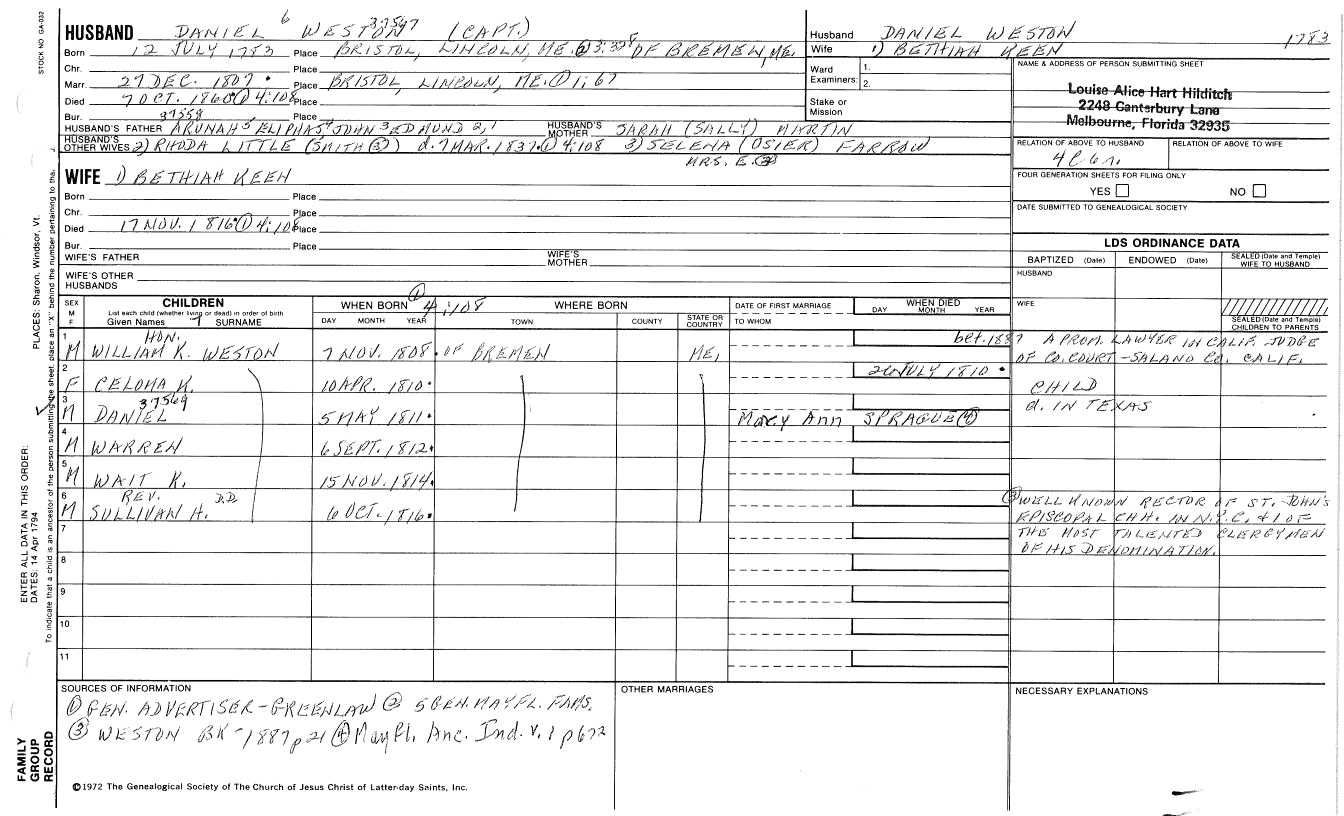 STOCK NO. GA-032
HUSBAND DANIEL 6 WESTON 37567 (CAPT.)
Born 12 JULY 1783 Place BRISTOL, LINCOLN, ME. ② 3:328 OF BREMEN, ME.
Chr. Place
Marr. 27 DEC. 1807 • Place BRISTOL, LINCOLN, ME. ① 1:67
Died 7 OCT. 1860 ① 4:108 Place
Bur. 37558 Place
HUSBAND'S FATHER ARUNAH 5, ELIPHAS 4, JOHN 3 EDMUND 2,1 HUSBAND'S MOTHER SARAH (SALLY) MARTIN
HUSBAND'S OTHER WIVES 2) RHODA LITTLE (SMITH ③) d. 7 MAR. 1837 ① 4:108 3) SELENA (OSIER) FARROW
MRS. E. ③
WIFE 1) BETHIAH KEEN
Born Place
Chr. Place
Died 17 NOV. 1816 • ① 4:108 Place
Bur. Place
WIFE'S FATHER WIFE'S MOTHER
WIFE'S OTHER HUSBANDS
Husband DANIEL WESTON 1783
Wife 1) BETHIAH KEEN
Ward Examiners: 1. 2.
Stake or Mission
NAME & ADDRESS OF PERSON SUBMITTING SHEET
Louise Alice Hart Hilditch
2248 Canterbury Lane
Melbourne, Florida 32935
RELATION OF ABOVE TO HUSBAND RELATION OF ABOVE TO WIFE
4C6r.
FOUR GENERATION SHEETS FOR FILING ONLY
YES NO
DATE SUBMITTED TO GENEALOGICAL SOCIETY
LDS ORDINANCE DATA
BAPTIZED (Date) ENDOWED (Date) SEALED (Date and Temple) WIFE TO HUSBAND
HUSBAND
WIFE
SEALED (Date and Temple) CHILDREN TO PARENTS
SEX M F CHILDREN WHEN BORN ① 4:108 WHERE BORN DATE OF FIRST MARRIAGE WHEN DIED
List each child (whether living or dead) in order of birth
Given Names 7 SURNAME DAY MONTH YEAR TOWN COUNTY STATE OR COUNTRY TO WHOM DAY MONTH YEAR
1 M HON. WILLIAM K. WESTON 7 NOV. 1808 • OF BREMEN ME. bef. 1887 A PROM. LAWYER IN CALIF. JUDGE
OF CO. COURT - SALANO CO. CALIF.
2 F CELOMA K. 10 APR. 1810 • 26 JULY 1810 • CHILD
3 M DANIEL 37569 5 MAY 1811 • Mary Ann SPRAGUE ④ d. IN TEXAS
4 M WARREN 6 SEPT. 1812 •
5 M WAIT K. 15 NOV. 1814 •
6 M REV. SULLIVAN H. D.D. 6 OCT. 1816 • ③ WELL KNOWN RECTOR OF ST. JOHN'S
EPISCOPAL CHH. IN N.Y.C. & 1 OF
THE MOST TALENTED CLERGYMEN
OF HIS DENOMINATION.
7
8
9
10
11
SOURCES OF INFORMATION
① GEN. ADVERTISER - GREENLAW ② 5 GEN. MAYFL. FAMS.
③ WESTON BK - 1887 p21 ④ Mayfl. Anc. Ind. v. 1 p672
OTHER MARRIAGES
NECESSARY EXPLANATIONS
©1972 The Genealogical Society of The Church of Jesus Christ of Latter-day Saints, Inc.
FAMILY GROUP RECORD
ENTER ALL DATA IN THIS ORDER:
DATES: 14 Apr 1794
PLACES: Sharon, Windsor, Vt.
To indicate that a child is an ancestor of the person submitting the sheet, place an "X" behind the number pertaining to that